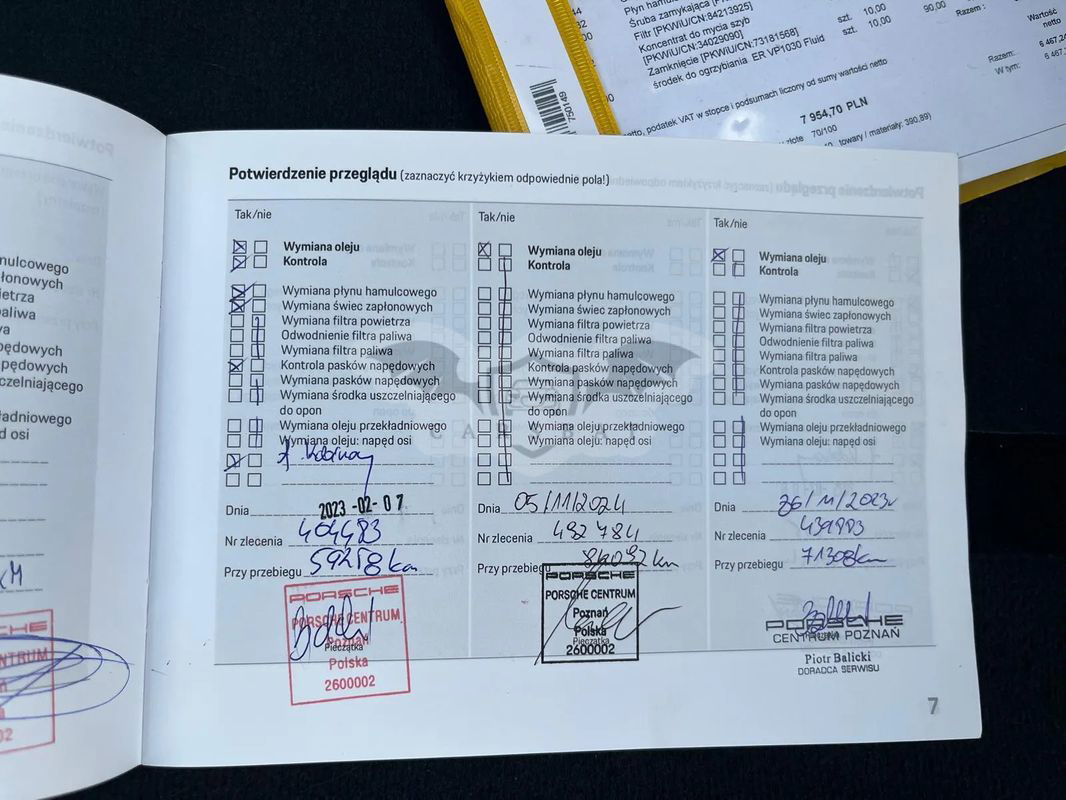 Płyn hamul
Śruba zamykająca
Filtr [PKWiU/CN:84213925]
Koncentrat do mycia szyb
[PKWiU/CN:34029090]
Zamknięcie [PKWiU/CN:73181568]
środek do ogrzybiania ER VP1030 Fluid
szt. 10,00
szt. 10,00
90,00
Razem :
Wartość
netto
Razem:
W tym:
podatek VAT w stopce i podsumach liczony od sumy wartości netto
7 954,70 PLN
złote 70/100
towary / materiały: 390,89)
750149
Potwierdzenie przeglądu (zaznaczyć krzyżykiem odpowiednie pola!)
Tak/nie
Wymiana oleju
Kontrola
Wymiana płynu hamulcowego
Wymiana świec zapłonowych
Wymiana filtra powietrza
Odwodnienie filtra paliwa
Wymiana filtra paliwa
Kontrola pasków napędowych
Wymiana pasków napędowych
Wymiana środka uszczelniającego
do opon
Wymiana oleju przekładniowego
Wymiana oleju: napęd osi
Dnia 2023-02-07
Nr zlecenia 404483
Przy przebiegu 59258 km
PORSCHE
PORSCHE CENTRUM
Poznań
Pieczątka
Polska
2600002
Tak/nie
Wymiana oleju
Kontrola
Wymiana płynu hamulcowego
Wymiana świec zapłonowych
Wymiana filtra powietrza
Odwodnienie filtra paliwa
Wymiana filtra paliwa
Kontrola pasków napędowych
Wymiana pasków napędowych
Wymiana środka uszczelniającego
do opon
Wymiana oleju przekładniowego
Wymiana oleju: napęd osi
Dnia 05/11/2024
Nr zlecenia 492784
Przy przebiegu km
PORSCHE
PORSCHE CENTRUM
Poznań
Polska
Pieczątka
2600002
Tak/nie
Wymiana oleju
Kontrola
Wymiana płynu hamulcowego
Wymiana świec zapłonowych
Wymiana filtra powietrza
Odwodnienie filtra paliwa
Wymiana filtra paliwa
Kontrola pasków napędowych
Wymiana pasków napędowych
Wymiana środka uszczelniającego
do opon
Wymiana oleju przekładniowego
Wymiana oleju: napęd osi
Dnia
Nr zlecenia
Przy przebiegu 71308 km
PORSCHE
CENTRUM POZNAŃ
Piotr Balicki
DORADCA SERWISU
7